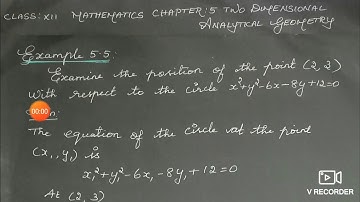 CLASS: XII MATHEMATICS CHAPTER: 5 TWO DIMENSIONAL
ANALYTICAL GEOMETRY
Example 5.5:
Examine the position of the point (2, 3)
With respect to the circle x²+y²-6x-8y+12=0
00:00
The equation of the circle at the point
(x₁, y₁) is
x₁²+y₁²-6x₁-8y₁+12=0
At (2, 3)
V RECORDER